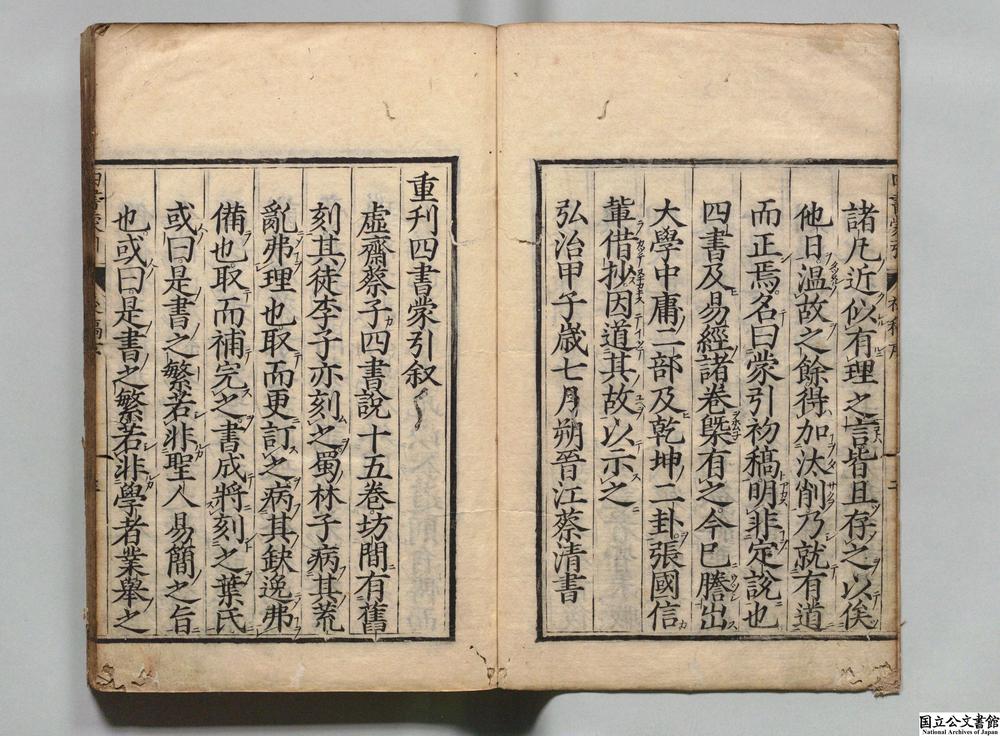 諸凡近似有理之言皆且存之以俟
他日溫故之餘得加汰削乃就有道
而正焉名曰蒙引初稿明非定說也
四書及易經諸卷槩有之今已謄出
大學中庸二部及乾坤二卦張國信
輩借抄因道其故以示之
弘治甲子歲七月朔晉江蔡清書
重刊四書蒙引叙
虛齋蔡子四書說十五卷坊間有舊
刻其徒李子亦刻之蜀林子病其荒
亂弗理也取而更訂之病其缺逸弗
備也取而補完之書成將刻之葉氏
或曰是書之繁若非聖人易簡之旨
也或曰是書之繁若非學者業舉之
国立公文書館
National Archives of Japan